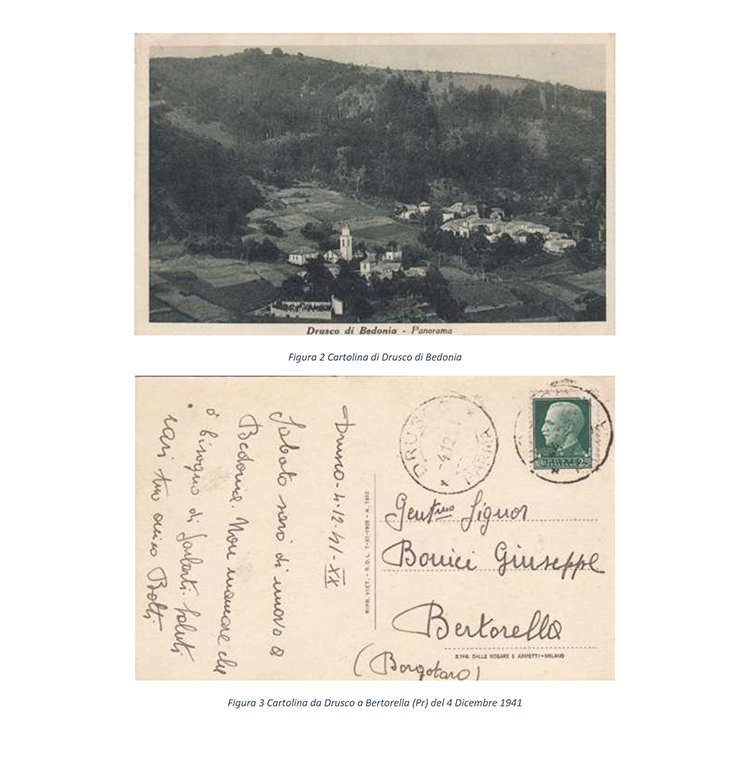 Drusco di Bedonia - Panorama
Figura 2 Cartolina di Drusco di Bedonia
Drusco - 4.12.41-XX
Sabato sarò di nuovo a
Bedonia. Non mancare che
ò bisogno di parlarti. Saluti
cari tuo amico Botti
DRUSCO
-4.12
PARMA
Gent.mo Signor
Bonici Giuseppe
Bertorella
(Borgotaro)
RIPR. VIET. - R.D.L. 7-XI-1925 - N. 1950
STAB. DALLE NOGARE & ARMETTI-MILANO
POSTE ITALIANE
Figura 3 Cartolina da Drusco a Bertorella (Pr) del 4 Dicembre 1941